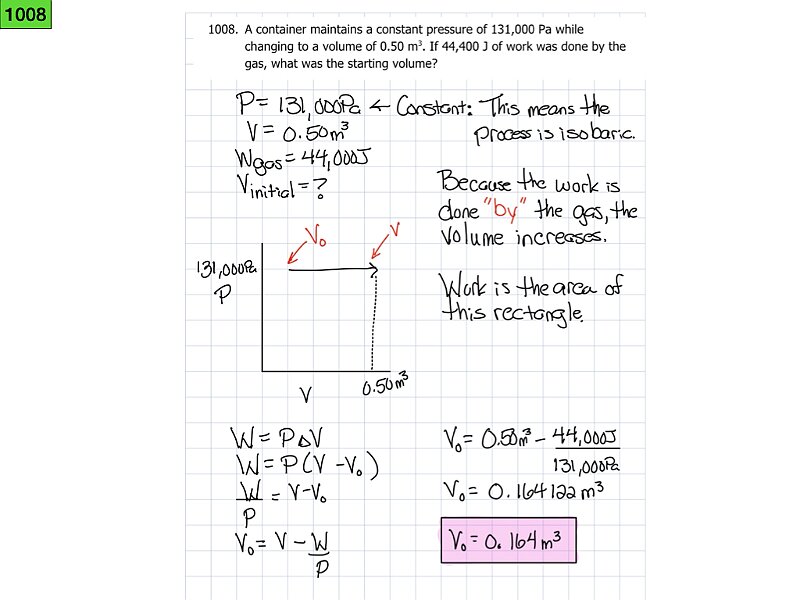 1008
1008. A container maintains a constant pressure of 131,000 Pa while
changing to a volume of 0.50 m³. If 44,400 J of work was done by the
gas, what was the starting volume?
P = 131,000Pa ← Constant: This means the
process is isobaric.
V = 0.50m³
Wgas = 44,000J
Vinitial = ?
Because the work is
done "by" the gas, the
volume increases.
V₀
V
131,000Pa
P
Work is the area of
this rectangle.
V
0.50m³
W = PΔV
W = P(V - V₀)
W/P = V - V₀
V₀ = V - W/P
V₀ = 0.50m³ - 44,000J/131,000Pa
V₀ = 0.164122 m³
V₀ = 0.164m³